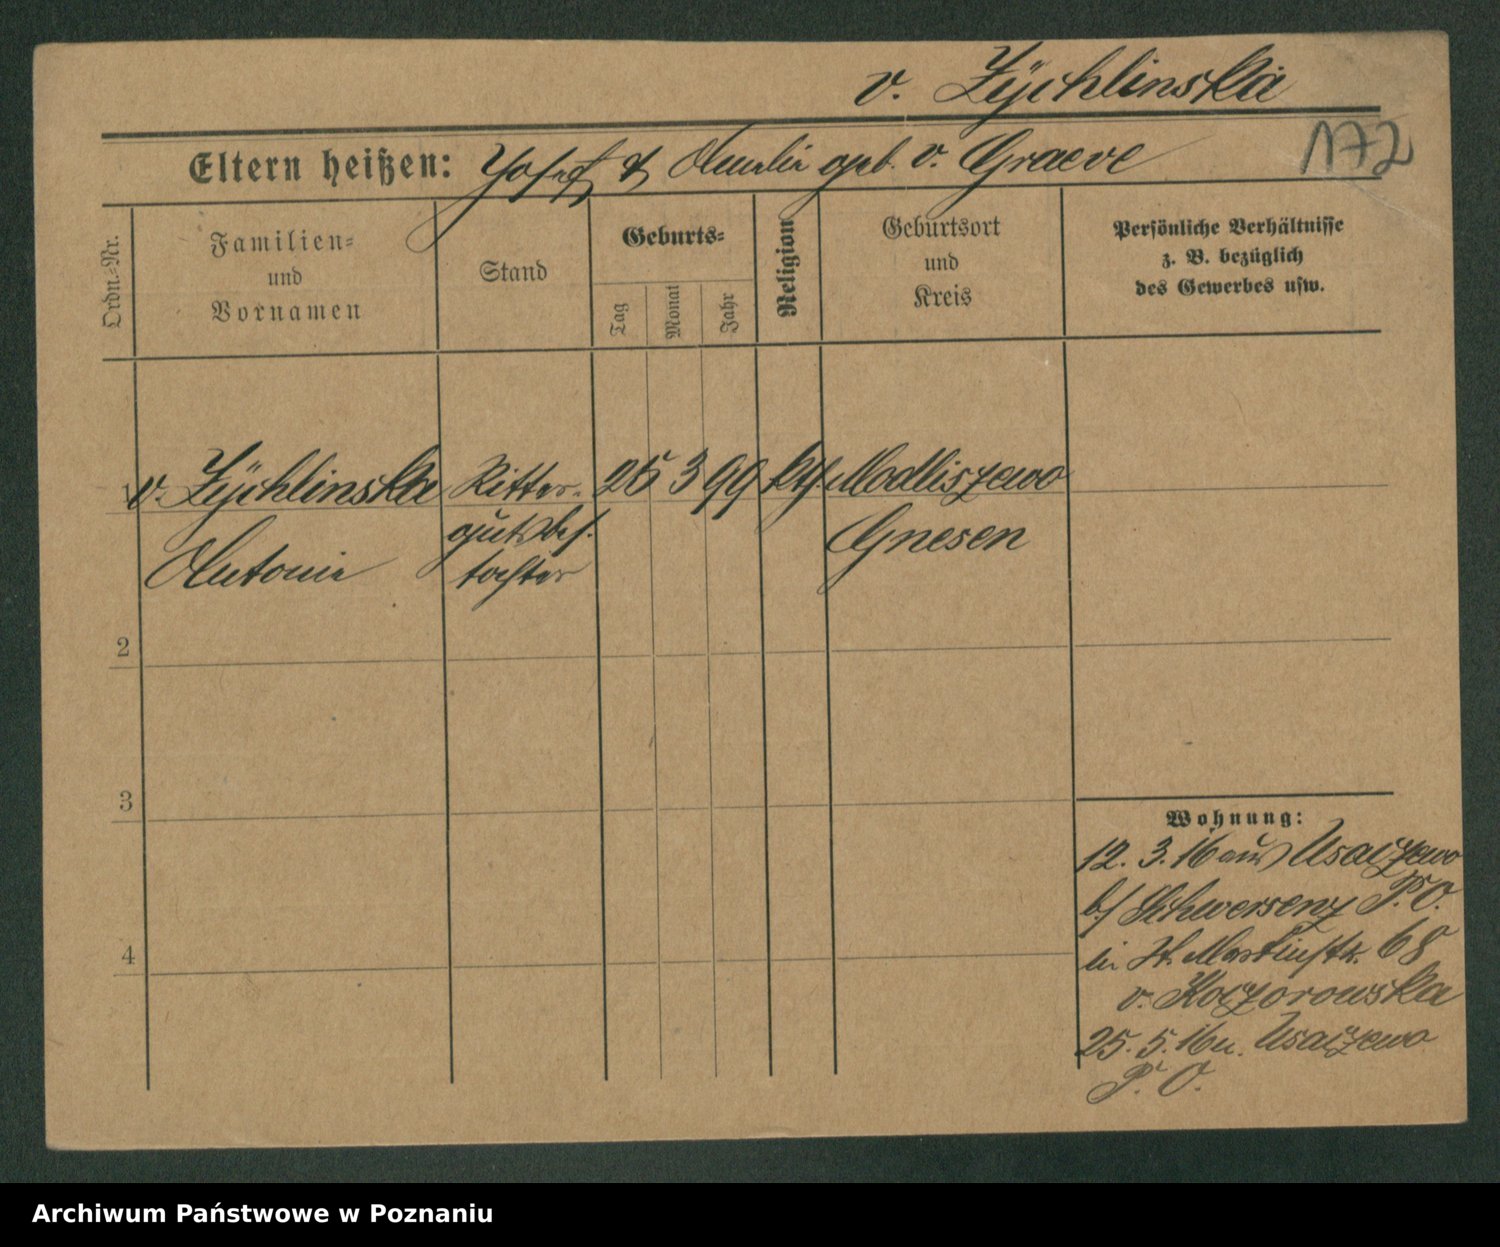 v. Zÿchlinska
172
Eltern heißen: Josef & Amalie geb. v. Graeve
Ordn.=Nr.
Familien=
und
Vornamen
Stand
Geburts=
Tag
Monat
Jahr
Religion
Geburtsort
und
Kreis
Persönliche Verhältnisse
z. B. bezüglich
des Gewerbes usw.
1 v. Zÿchlinska Ritter- 25 3 99 kth Modliszewo
gutsbes. Gnesen
Antonie tochter
2
3
4
Wohnung:
12. 3. 16 aus Usarzewo
b/ Schwersenz P. O.
in St. Martinstr. 68
v. Koczorowska
25. 5. 16 n. Usarzewo
P. O.
Archiwum Państwowe w Poznaniu